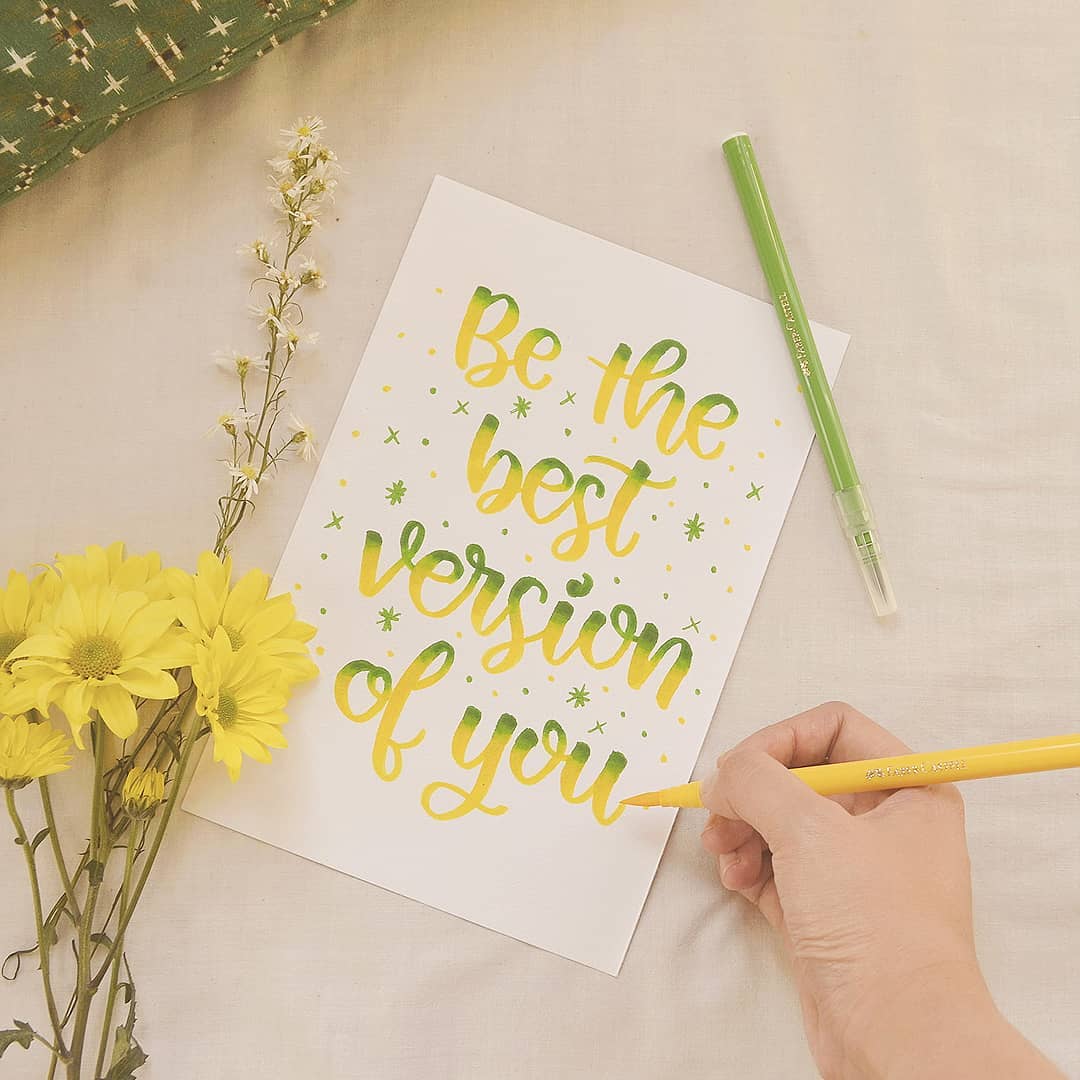 Be the
best
version
of you
FABER-CASTELL
FABER-CASTELL